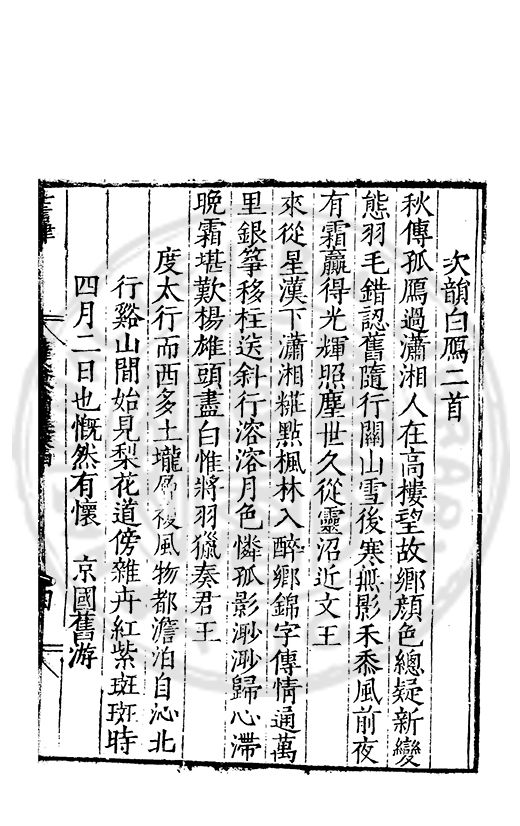 次韻白鴈二首
秋傳孤鴈過瀟湘人在高樓望故鄉顔色總疑新變
態羽毛錯認舊隨行關山雪後寒無影禾黍風前夜
有霜贏得光輝照塵世久從靈沼近文王
來從星漢下瀟湘糚點楓林入醉鄉錦字傳情通萬
里銀箏移柱送斜行溶溶月色憐孤影渺渺歸心滯
晚霜堪歎楊雄頭盡白惟將羽獵奏君王
度太行而西多土壠複風物都澹泊自沁北
行谿山間始見梨花道傍雜卉紅紫斑斑時
四月二日也慨然有懷 京國舊游